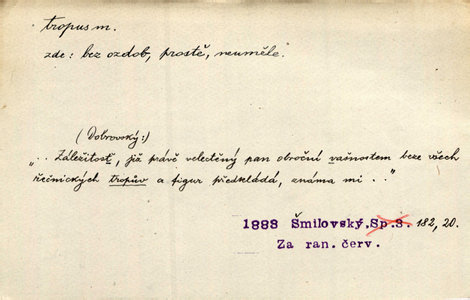 tropus m.
zde: bez ozdob, prostě, neuměle.
(Dobrovský:)
„.. Záležitosť, již právě velectěný pan obroční vašnostem beze všech
řečnických tropův a figur předkládá, známa mi .."
1888 Šmilovský, Sp. 3. 182, 20.
Za ran. červ.